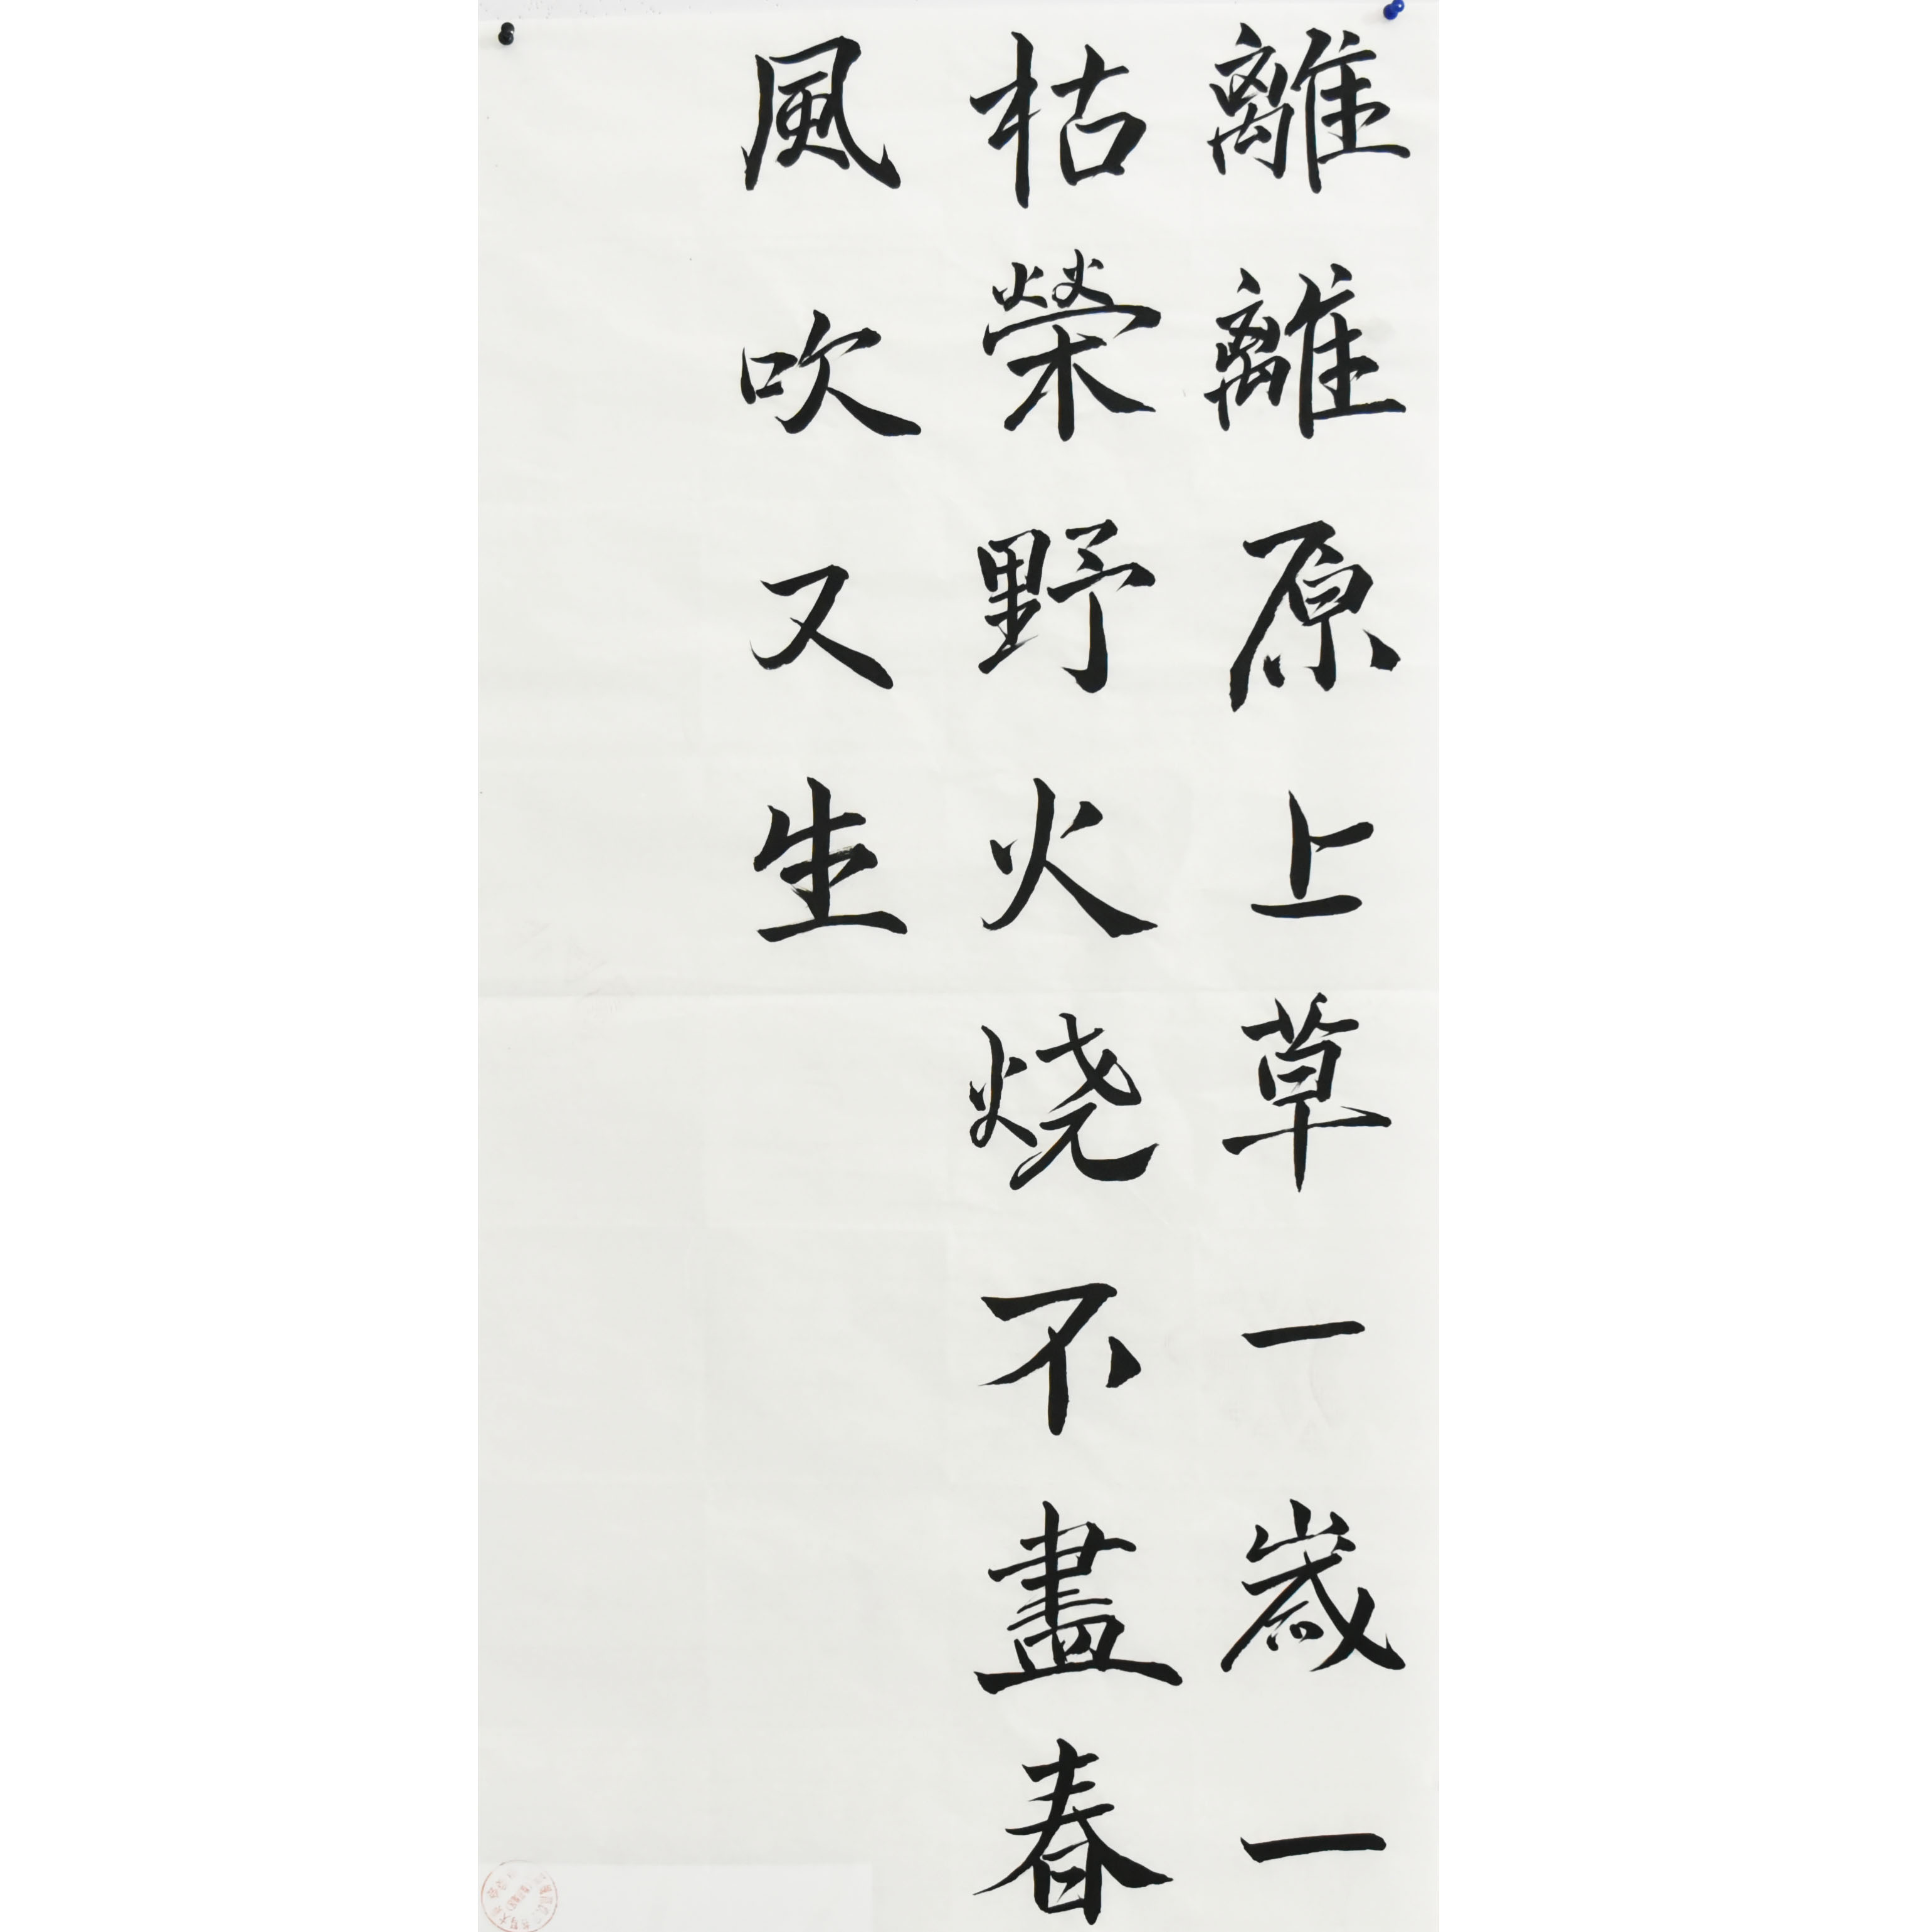 離離原上草一歲一
枯榮野火烧不盡春
風吹又生